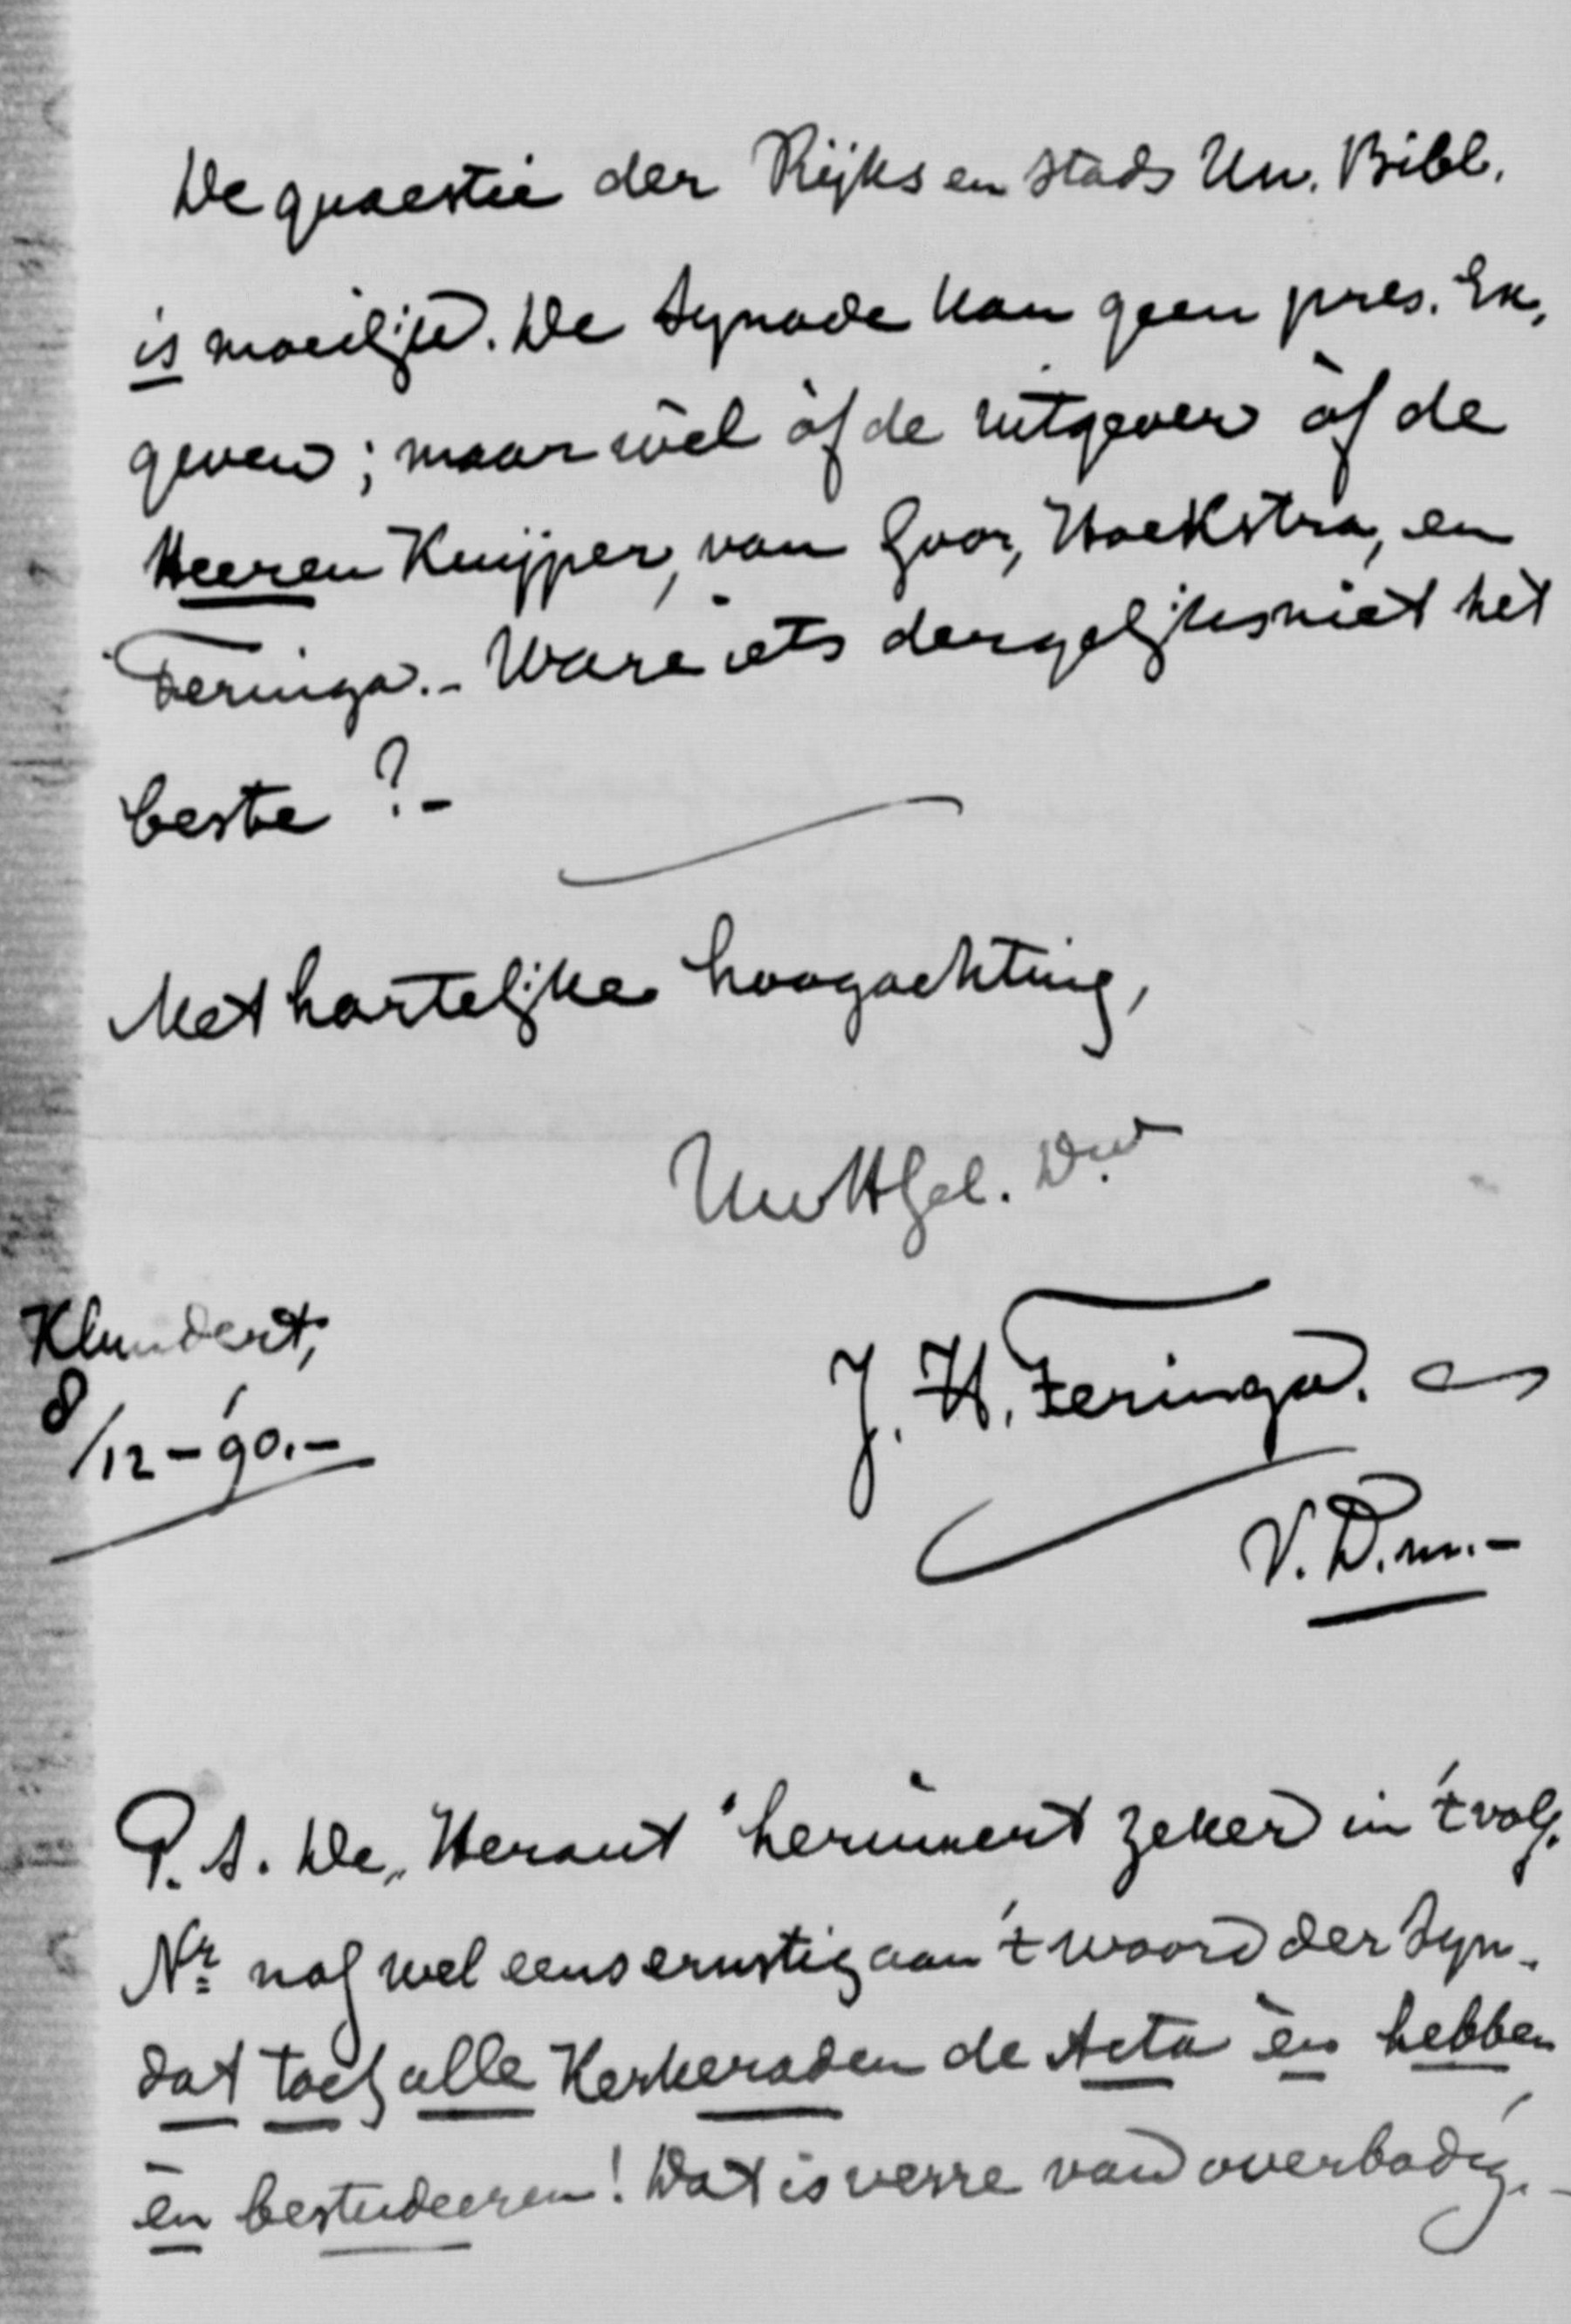 De quaestie der Rijks en Stads Un. Bibl.
is moeilijk. De Synode kan geen pres. Ex.
geven; maar wèl òf de uitgever òf de
Heeren Kuijper, van Goor, Hoekstra, en
Feringa.- Ware iets dergelijks niet het
beste?-
Met hartelijke hoogachting,
Uw HGel. Dw.
Klundert,
8/12-'90.-
J. H. Feringa.
V.D.m.-
P.S. De „Heraut" herinnert zeker in 't volg.
Nr. nog wel eens ernstig aan 't woord der Syn.
dat toch alle Kerkeraden de Acta èn hebben
èn bestudeeren! Dat is verre van overbodig.-